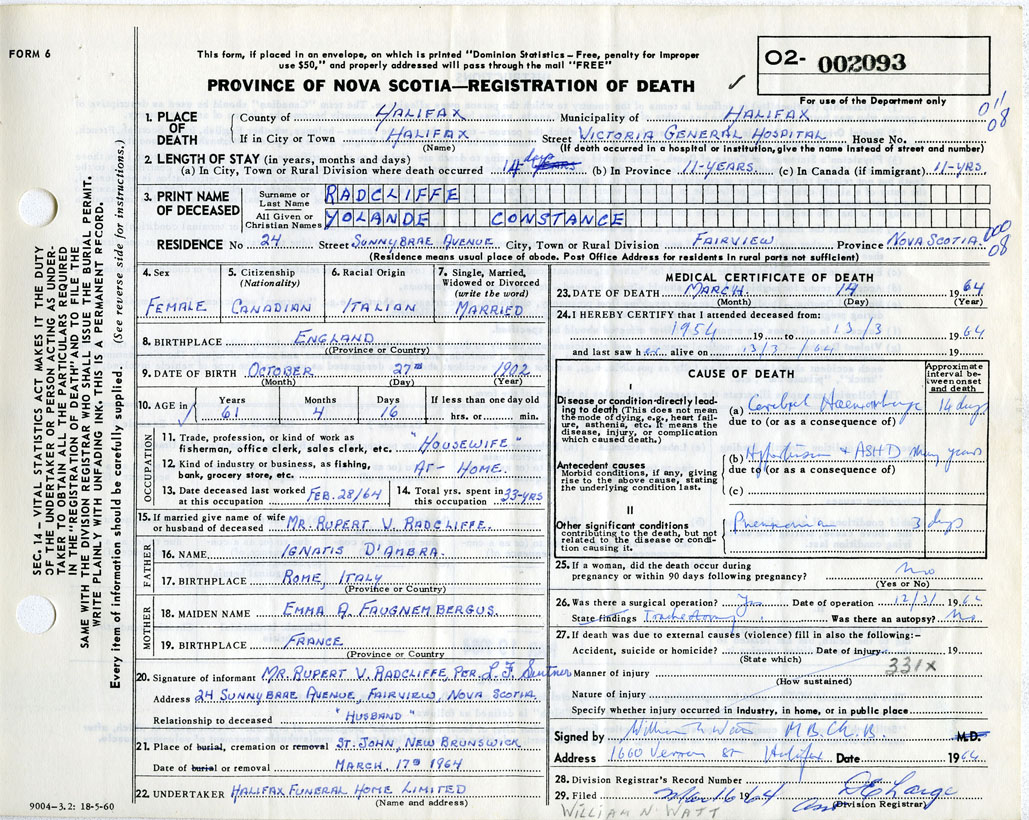 FORM 6
This form, if placed in an envelope, on which is printed "Dominion Statistics – Free, penalty for improper
use $50," and properly addressed will pass through the mail "FREE"
PROVINCE OF NOVA SCOTIA—REGISTRATION OF DEATH ✓
O2- 002093
For use of the Department only
011
08
1. PLACE OF DEATH
County of HALIFAX Municipality of HALIFAX
If in City or Town HALIFAX Street VICTORIA GENERAL HOSPITAL House No.
(Name) (If death occurred in a hospital or institution, give the name instead of street and number)
2. LENGTH OF STAY (in years, months and days)
(a) In City, Town or Rural Division where death occurred 14 days YEARS (b) In Province 11-YEARS (c) In Canada (if immigrant) 11-YRS
3. PRINT NAME OF DECEASED
Surname or Last Name RADCLIFFE
All Given or Christian Names YOLANDE CONSTANCE
RESIDENCE No 24 Street SUNNYBRAE AVENUE City, Town or Rural Division FAIRVIEW Province NOVA SCOTIA
000
08
(Residence means usual place of abode. Post Office Address for residents in rural parts not sufficient)
SEC. 14 – VITAL STATISTICS ACT MAKES IT THE DUTY
OF THE UNDERTAKER OR PERSON ACTING AS UNDER-
TAKER TO OBTAIN ALL THE PARTICULARS REQUIRED
IN THE "REGISTRATION OF DEATH" AND TO FILE THE
SAME WITH THE DIVISION REGISTRAR WHO SHALL ISSUE THE BURIAL PERMIT.
WRITE PLAINLY WITH UNFADING INK. THIS IS A PERMANENT RECORD.
Every item of information should be carefully supplied. (See reverse side for instructions.)
4. Sex
FEMALE
5. Citizenship
(Nationality)
CANADIAN
6. Racial Origin
ITALIAN
7. Single, Married,
Widowed or Divorced
(write the word)
MARRIED
8. BIRTHPLACE ENGLAND
(Province or Country)
9. DATE OF BIRTH OCTOBER 27TH 1902
(Month) (Day) (Year)
10. AGE in
Years Months Days If less than one day old
61 4 16 hrs. or min.
OCCUPATION
11. Trade, profession, or kind of work as
fisherman, office clerk, sales clerk, etc. "HOUSEWIFE"
12. Kind of industry or business, as fishing,
bank, grocery store, etc. AT- HOME.
13. Date deceased last worked
at this occupation FEB. 28/64
14. Total yrs. spent in
this occupation 33-YRS
15. If married give name of wife
or husband of deceased MR. RUPERT V. RADCLIFFE.
FATHER
16. NAME IGNATIS D'AMBRA.
17. BIRTHPLACE ROME, ITALY
(Province or Country)
MOTHER
18. MAIDEN NAME EMMA A. FAUGNEM BERGUS.
19. BIRTHPLACE FRANCE
(Province or Country
20. Signature of informant MR. RUPERT V. RADCLIFFE PER. L.F.
Address 24 SUNNYBRAE AVENUE, FAIRVIEW, NOVA SCOTIA
Relationship to deceased "HUSBAND"
21. Place of burial, cremation or removal ST. JOHN, NEW BRUNSWICK
Date of burial or removal MARCH, 17TH 1964
22. UNDERTAKER HALIFAX FUNERAL HOME LIMITED
(Name and address)
9004–3.2: 18-5-60
MEDICAL CERTIFICATE OF DEATH
23. DATE OF DEATH MARCH 14 1964
(Month) (Day) (Year)
24. I HEREBY CERTIFY that I attended deceased from:
1954 19 to 13/3 1964
and last saw her alive on 13/3/64 19
CAUSE OF DEATH
Approximate
interval be-
tween onset
and death
I
Disease or condition directly lead-
ing to death (This does not mean
the mode of dying, e.g., heart fail-
ure, asthenia, etc. It means the
disease, injury, or complication
which caused death.)
(a) Cerebral Haemorrhage 14 days
due to (or as a consequence of)
Antecedent causes
Morbid conditions, if any, giving
rise to the above cause, stating
the underlying condition last.
(b) Hypertension & ASHD Many years
due to (or as a consequence of)
(c)
II
Other significant conditions
contributing to the death, but not
related to the disease or condi-
tion causing it.
Pneumonia 3 days
25. If a woman, did the death occur during
pregnancy or within 90 days following pregnancy? No
(Yes or No)
26. Was there a surgical operation? Yes Date of operation 12/3/ 1964
State findings Tracheotomy Was there an autopsy? No
27. If death was due to external causes (violence) fill in also the following:–
Accident, suicide or homicide? Date of injury 19
(State which)
331X
Manner of injury
(How sustained)
Nature of injury
Specify whether injury occurred in industry, in home, or in public place
Signed by William N Watt M.B. Ch. B. M.D.
Address 1660 Vernon St Halifax Date 1964
28. Division Registrar's Record Number
29. Filed Mar 16 1964
Division Registrar
WILLIAM N. WATT